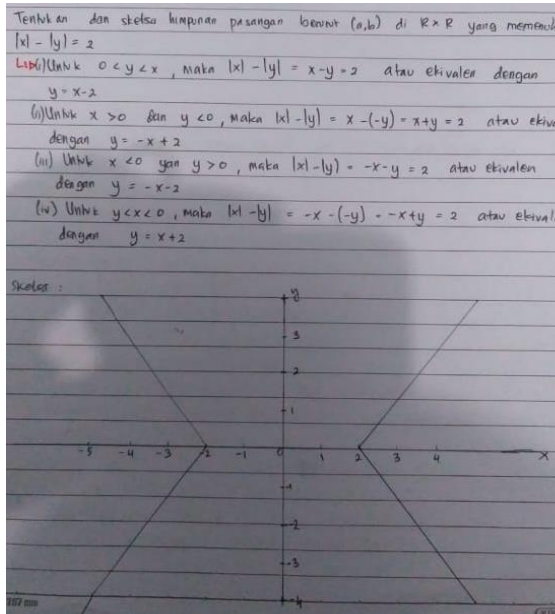 Tentukan dan sketsa himpunan pasangan berurut (a,b) di R×R yang memenuh
|x| - |y| = 2
(i) Untuk 0 < y < x, maka |x| - |y| = x-y = 2 atau ekivalen dengan
y = x-2
(ii) Untuk x > 0 dan y < 0, maka |x| - |y| = x - (-y) = x+y = 2 atau ekiva
dengan y = -x + 2
(iii) Untuk x < 0 yan y > 0, maka |x| - |y| = -x - y = 2 atau ekivalen
dengan y = -x - 2
(iv) Untuk y < x < 0, maka |x| - |y| = -x - (-y) = -x+y = 2 atau ekival
dengan y = x + 2
Sketsa :
y
3
2
1
-5 -4 -3 -2 -1 0 1 2 3 4 x
-1
-2
-3
-4